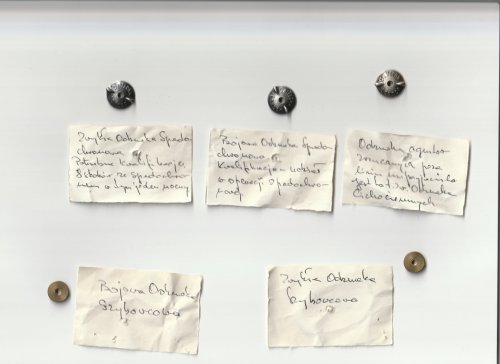 Zwykła Odznaka Spado-
chronowa
Potrzebne kwalifikacje
8 skoków ze spadochro-
nem w tym jeden nocny
Bojowa Odznaka Spado-
chronowa
Kwalifikacje - udział
w operacji spadochro-
nowej
Odznaka
zrzuconych poza
linię nieprzyjaciela
jest to t.zw. Odznaka
Cichociemnych
Bojowa Odznaka
Szybowcowa
Zwykła Odznaka
Szybowcowa